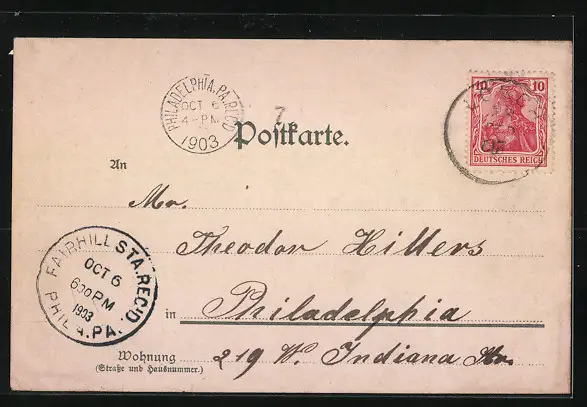 PHILADELPHIA.PA.REC'D
OCT 6
4-PM
1903
7
Postkarte.
10 10
DEUTSCHES REICH
An
Mr.
Theodor Hillers
FAIRHILL STA. REC'D.
OCT 6
630 PM
1903
PHILA. PA.
in Philadelphia
Wohnung
(Straße und Hausnummer.)
219 W. Indiana Str.